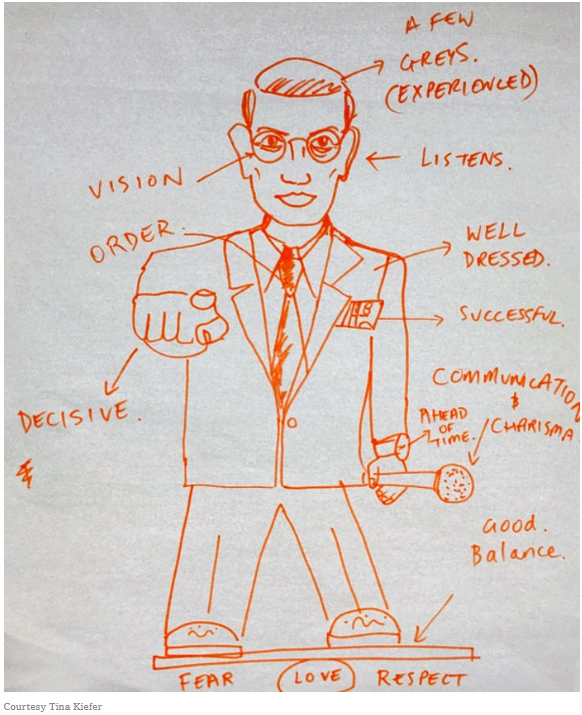 A FEW
GREYS.
(EXPERIENCED)
VISION
LISTENS.
ORDER.
WELL
DRESSED.
SUCCESSFUL.
COMMUNICATION
&
CHARISMA
AHEAD
OF
TIME.
DECISIVE.
Good.
Balance.
FEAR LOVE RESPECT
Courtesy Tina Kiefer